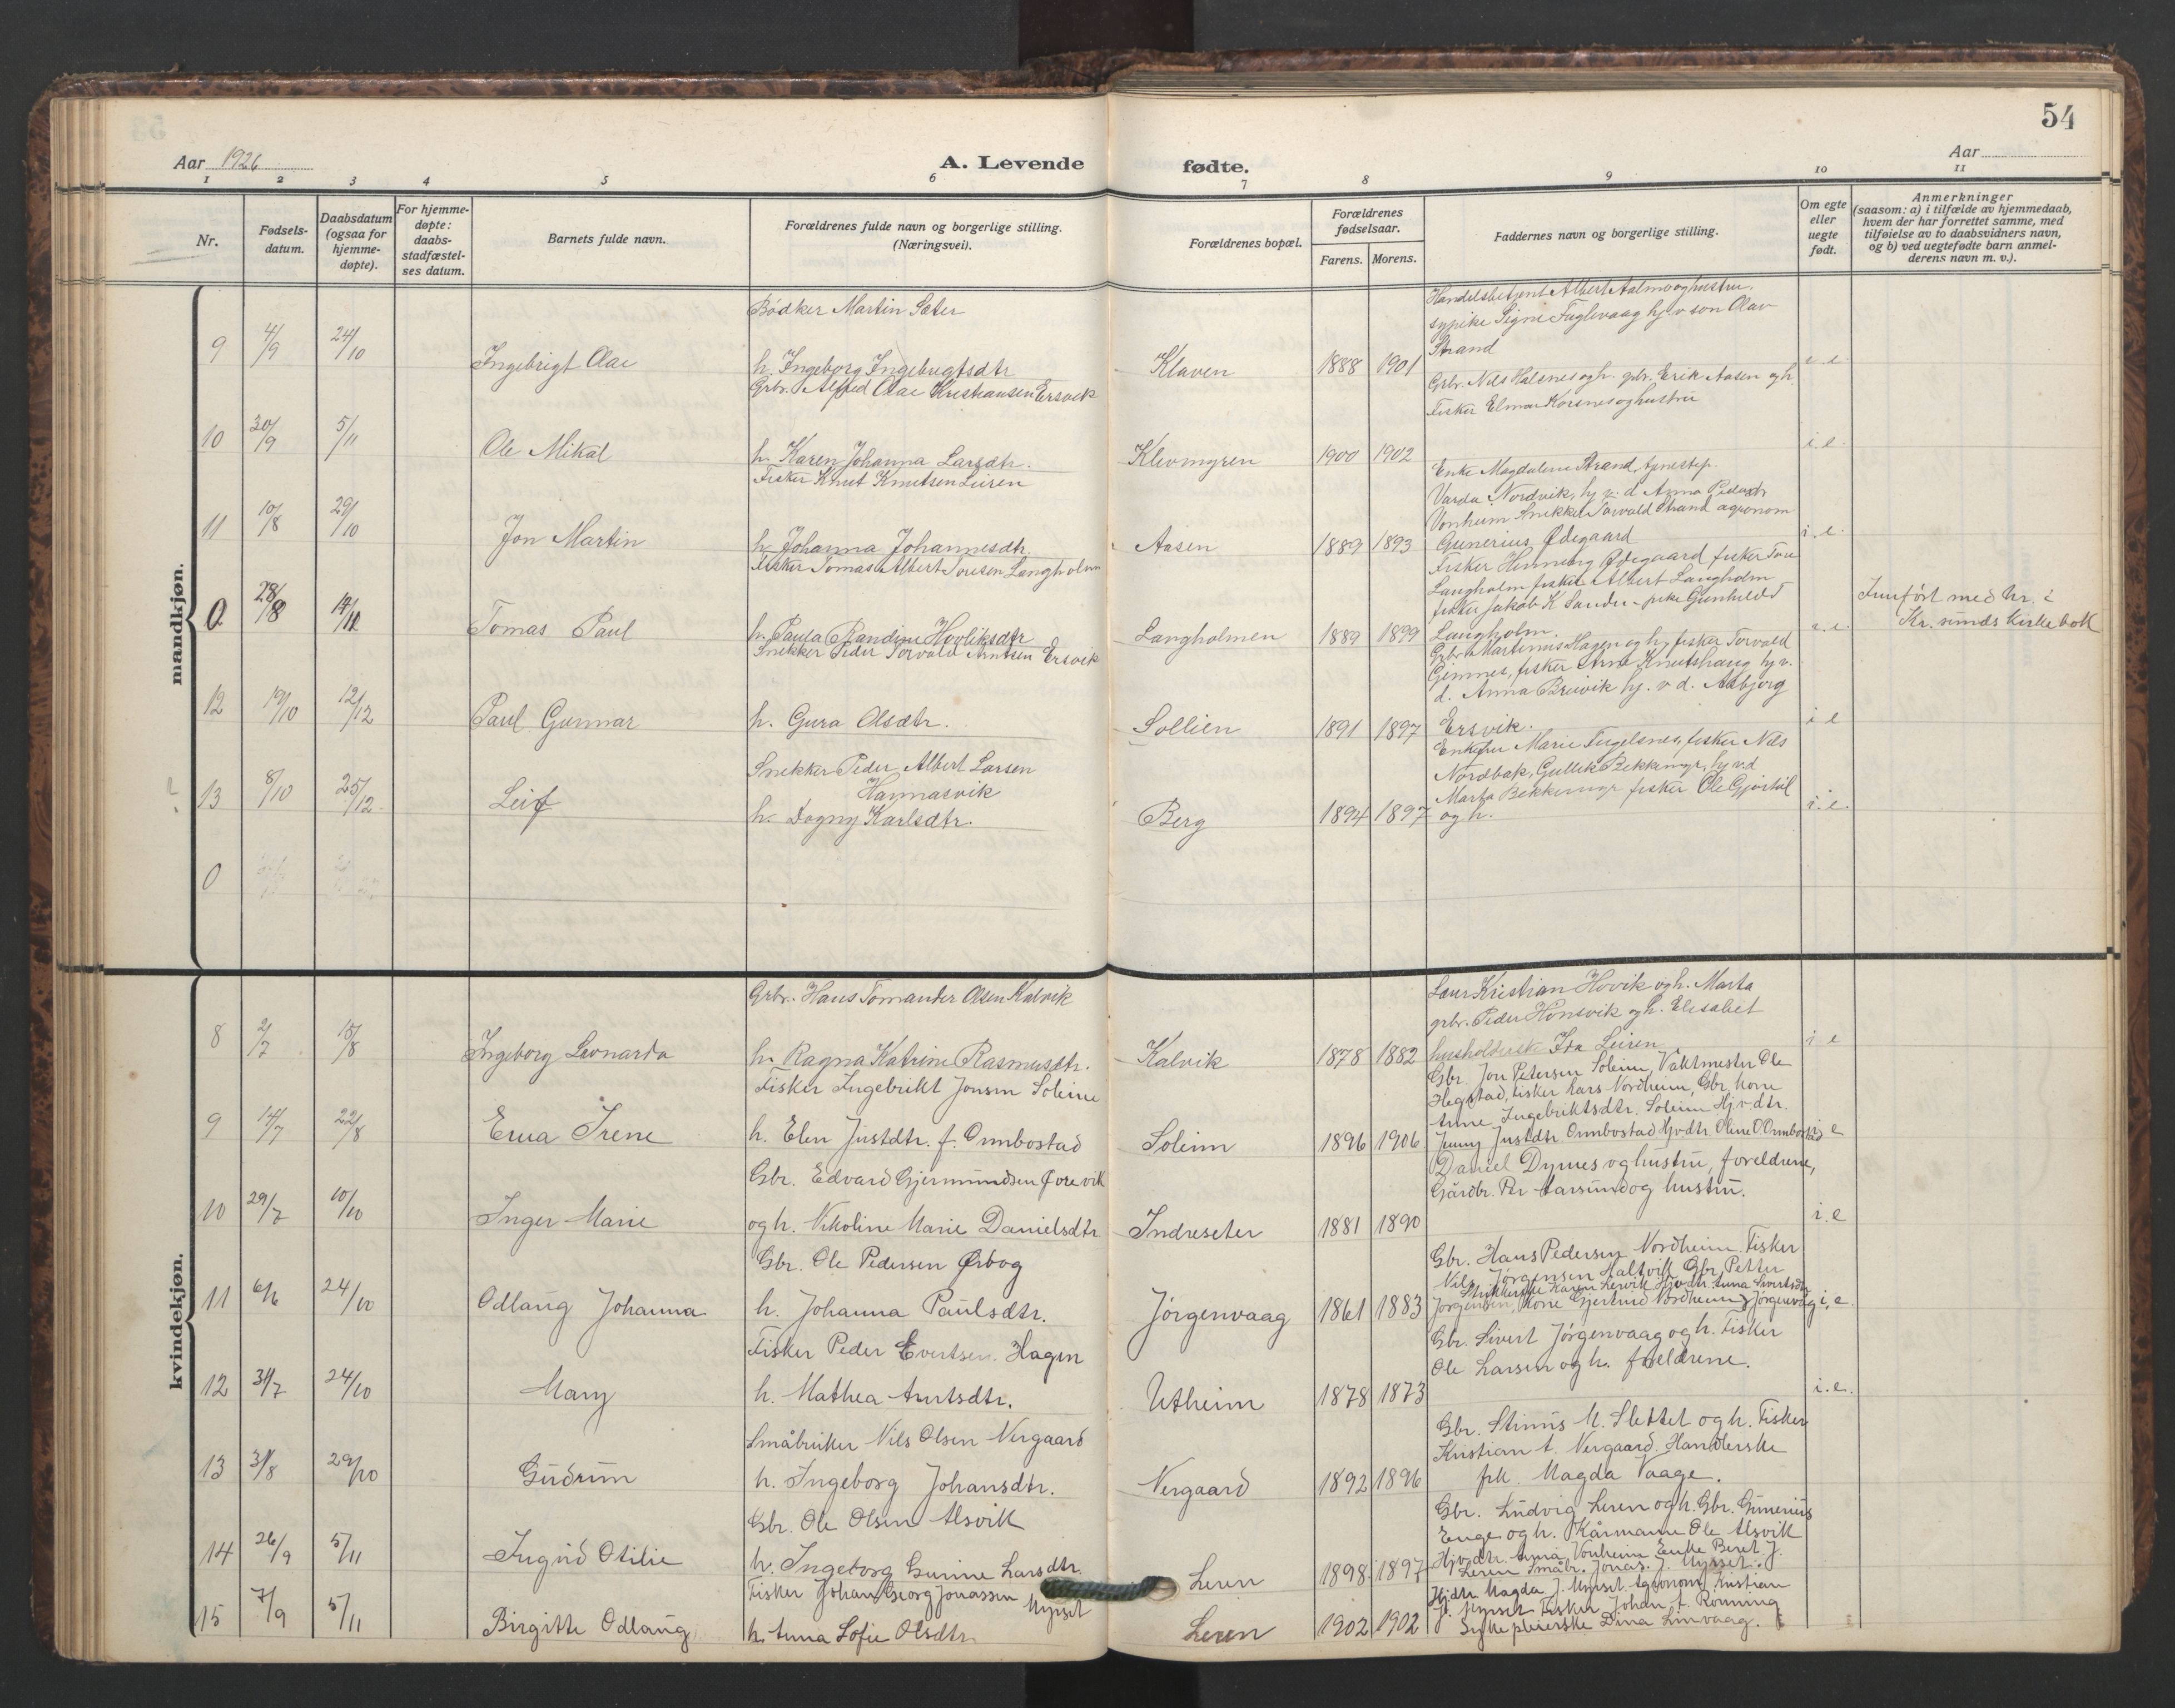 54
Aar 1926
A. Levende fødte.
Aar
1 2 3 4 5 6 7 8 9 10 11
Nr.
Fødsels-
datum.
Daabsdatum
(ogsaa for
hjemme-
døpte).
For hjemme-
døpte:
daabs-
stadfæstel-
ses datum.
Barnets fulde navn.
Forældrenes fulde navn og borgerlige stilling.
(Næringsvei).
Forældrenes bopæl.
Forældrenes
fødselsaar.
Farens. Morens.
Faddernes navn og borgerlige stilling.
Om egte
eller
uegte
født.
Anmerkninger
(saasom: a) i tilfælde av hjemmedaab,
hvem der har forrettet samme, med
tilføielse av to daabsvidners navn,
og b) ved uegtefødte barn anmel-
derens navn m. v.).
mandkjøn.
Bødker Martin Sæter
9 4/9 24/10 Ingebrigt Olai h. Ingeborg Ingebrigtsdtr Klaven 1888 1901
Handelsbetjent Albert Aalmo og hustru.
sypike Signe Fuglevaag hj v son Olav
Strand
Grbr. Alfred Olai Kristiansen Ersvik
10 30/9 5/11 Ole Mikal h. Karen Johanna Larsdtr. Klevmyren 1900 1902 i e.
Grbr. Nils Halsnes og h. grbr. Erik Aasen og h.
Fisker Elmar Korsnes og hustru
Fisker Knut Knutsen Leiren
11 10/8 29/10 Jon Martin h. Johanna Johannesdtr. Aasen 1889 1893 i. e.
Enke Magdalene Strand, tjenestep.
Varda Nordvik, hj v. d Anna Pedersdtr
Vonheim Snekker Torvald Strand agronom
Gunerius Ødegaard
Fisker Tomas Albert Toresen Langholm
0 28/8 14/11 Tomas Paul h. Paula Randine Hovliksdtr Langholmen 1889 1899 i. e.
Fisker Henning Ødegaard fisker Tore
Langholm fisker Albert Langholm
fisker Jakob K Sander - pike Gunhild
Langholm.
Innført med nr. i
Kr. sunds Kirkebok
Snekker Peder Torvald Arntsen Ersvik
12 19/10 12/12 Paul Gunnar h. Gura Olsdtr. Sollien 1891 1897 i e
Grbr Martinus Hagen og h, fisker Torvald
Gimnes, fisker Arne Knutshaug hj v.
d. Anna Breivik hj. v d. Asbjørg
Ersvik.
Snekker Peder Albert Larsen
Hannasvik
13 8/10 25/12 Leif h. Dagny Karlsdtr. Berg 1894 1897 i. e.
Enkefru Marie Fugelsnes, fisker Nils
Nordbak, Gullik Bekkemyr, hj v. d
Marta Bekkemyr fisker Ole Gjøstøl
og h.
0
kvindekjøn.
Grbr. Hans Tomander Olsen Kalvik
8 2/7 15/8 Ingeborg Leonarda h. Ragna Katrine Rasmusdtr. Kalvik 1878 1882 i e
Kristian Hovik og h. Marta
grbr. Peder Honsvik og h. Elisabet
Ida Leiren
Fisker Ingebrikt Jonsen Soleim
9 14/7 22/8 Erna Irene h. Elen Justdtr. f. Ormbostad Soleim 1896 1906 i e
Gbr. Jon Petersen Soleim, Vaktmester Ole
Hegstad, fisker Lars Nordheim, Gbr. kone
Anne Ingebriktsdtr. Soleim Hj. v. dtr.
Jenny Justdtr Ormbostad Hjvdtr Oline O. Ormbostad
Gbr. Edvard Gjermundsen Forevik
10 29/7 10/10 Inger Marie og h. Nikoline Marie Danielsdtr Indreseter 1881 1890 i. e
Daniel Dyrnes og hustru, foreldrene,
Gårdbr. Per Aarsund og hustru.
Gbr. Ole Pedersen Ørbog
11 6/6 24/10 Odlaug Johanna h. Johanna Paulsdtr. Jørgenvaag 1861 1883 i, e.
Gbr. Hans Pedersen Nordheim. Fisker
Nils Jørgensen Haltvik Gbr. Petter
Strikkerske Karen Lervik Hjvdtr. Anna Sivertsdtr
Jørgensen, Kone Gjertrud Nordheim Jørgenvåg
Fisker Peder Evertsen Hagen
12 31/7 24/10 Mary h. Mathea Arntsdtr. Utheim 1878 1873 i. e.
Gbr. Sivert Jørgenvaag og h. Fisker
Ole Larsen og h. foreldrene.
Småbruker Nils Olsen Nergaard
13 31/8 29/10 Gudrun h. Ingeborg Johansdtr. Nergaard 1892 1896
Gbr. Stinius M. Slettet og h. Fisker
Kristian A. Nergaard. Handlerske
frk. Magda Vaage.
Gbr. Ole Olsen Alsvik
14 26/9 5/11 Ingrid Otilie h. Ingeborg Gurine Larsdtr. Leren 1898 1897
Gbr. Ludvig Leren og h. Gbr. Gunerius
Enge og h. Kårmann Ole Alsvik
Hjvdtr. Anna Vonheim Enke Beret J.
Leren
Fisker Johan Georg Jonassen Myrset
15 7/9 5/11 Birgitte Odlaug h. Anna Sofie Olsdtr. Leren 1902 1902
Småbr. Jonas J. Myrset.
Hjdtr Magda J. Myrset. Agronom Kristian
J. Myrset Fisker Johan A. Rønning
Sykepleierske Dina Linvaag.